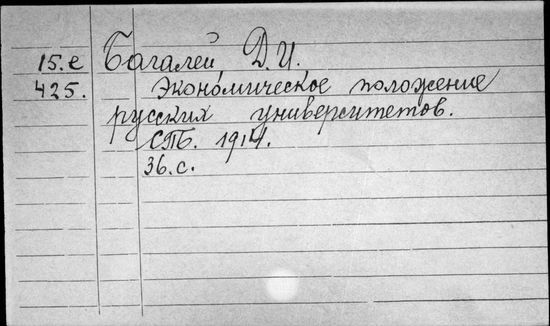 15.е Багалей Д. И.
425. Экономическое положение
русских университетов.
СПБ. 1914.
36.с.